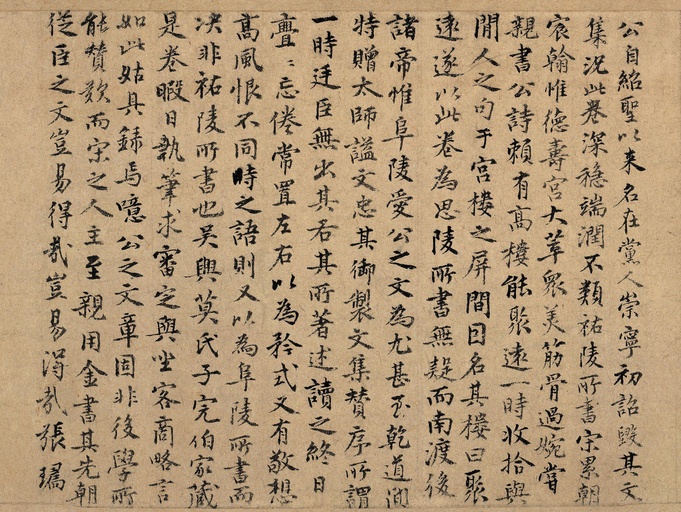 公自紹聖以来名在黨人崇寧初詔毀其文
集況此卷深穩端潤不類祐陵所書宋累朝
宸翰惟德壽宮大萃眾美筋骨過婉嘗
親書公詩賴有高樓能聚遠一時收拾與
閒人之句于宮樓之屏間因名其樓曰聚
遠遂以此卷為思陵所書無疑而南渡後
諸帝惟阜陵愛公之文為尤甚至乾道間
特贈太師謚文忠其御製文集賛序所謂
一時廷臣無出其右其所著述讀之終日
亹〻忘倦常置左右以為矜式又有敬想
高風恨不同時之語則又以為阜陵所書而
决非祐陵所書也吴興莫氏子完伯家藏
是卷暇日執筆求審定與坐客商略言
如此姑具錄焉噫公之文章固非後學所
能賛歎而宋之人主至親用金書其先朝
從臣之文豈易得哉豈易得哉張璹